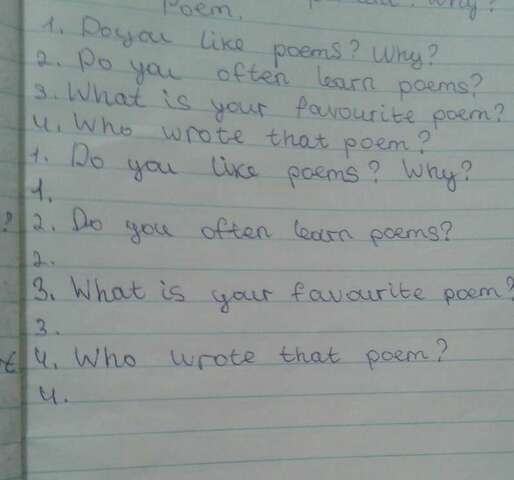 Poem. Why?
1. Do you like poems? Why?
2. Do you often learn poems?
3. What is your favourite poem?
4. Who wrote that poem?
1. Do you like poems? Why?
1.
? 2. Do you often learn poems?
2.
3. What is your favourite poem?
3.
t 4. Who wrote that poem?
4.